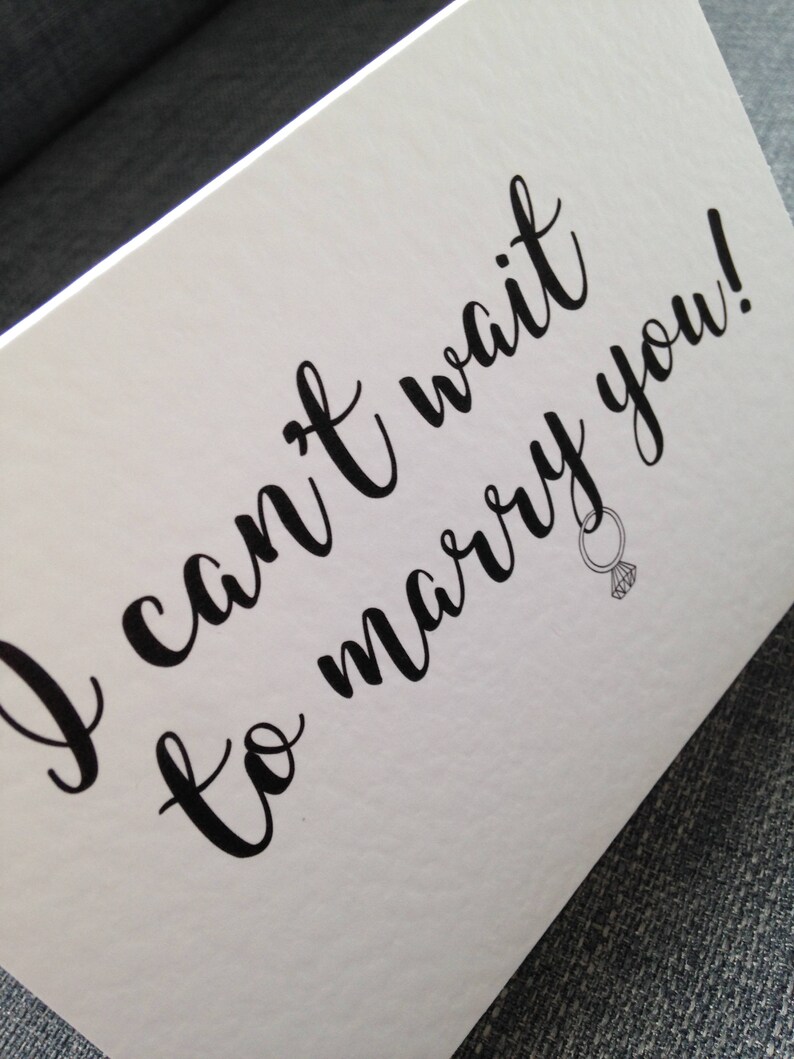 I can't wait
to marry you!